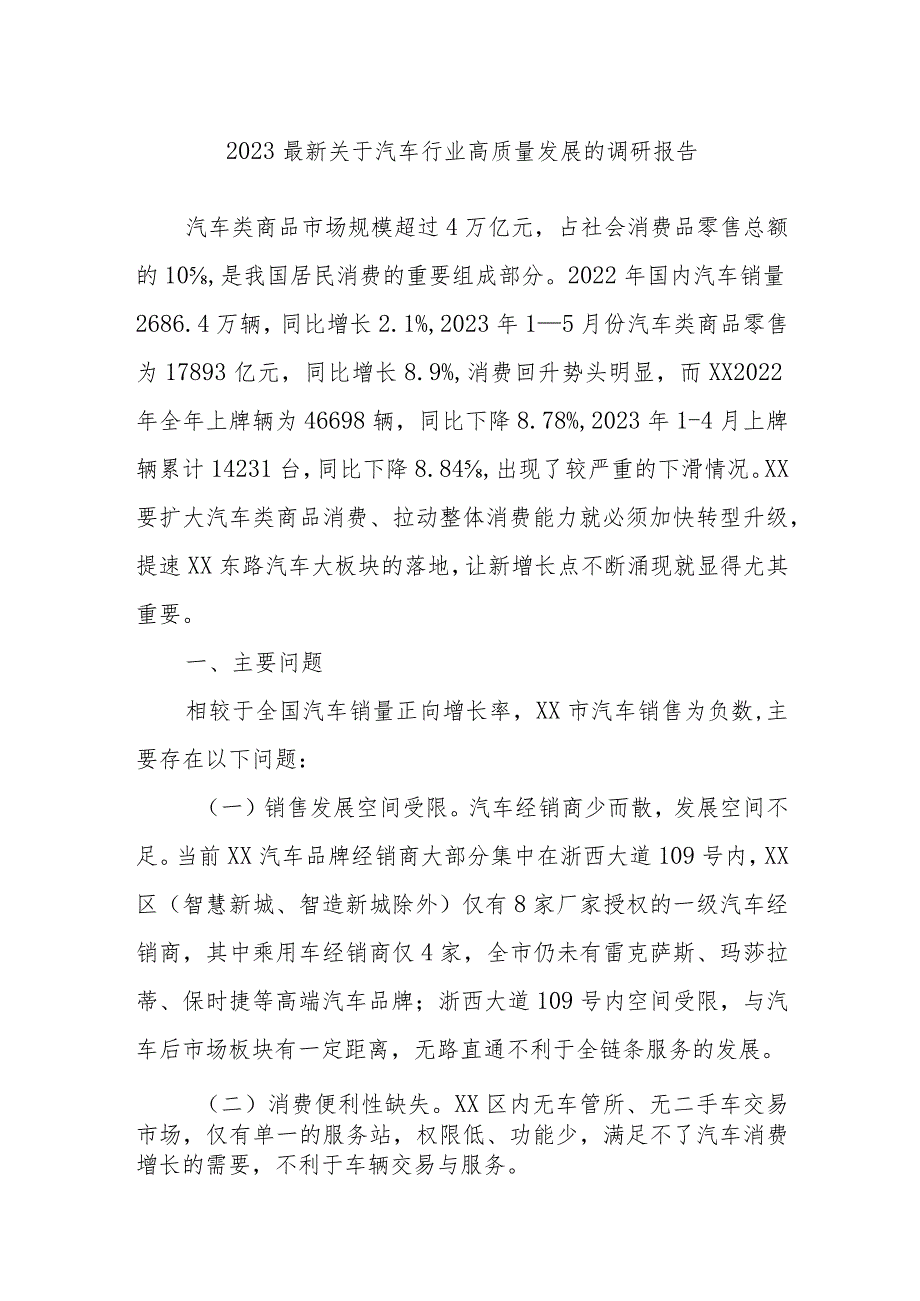 2023最新关于汽车行业高质量发展的调研报告
汽车类商品市场规模超过4万亿元，占社会消费品零售总额
的10%,是我国居民消费的重要组成部分。2022年国内汽车销量
2686.4万辆，同比增长2.1%,2023年1—5月份汽车类商品零售
为17893亿元，同比增长8.9%,消费回升势头明显，而XX2022
年全年上牌辆为46698辆，同比下降8.78%,2023年1-4月上牌
辆累计14231台，同比下降8.84%,出现了较严重的下滑情况。XX
要扩大汽车类商品消费、拉动整体消费能力就必须加快转型升级，
提速XX东路汽车大板块的落地，让新增长点不断涌现就显得尤其
重要。
一、主要问题
相较于全国汽车销量正向增长率，XX市汽车销售为负数,主
要存在以下问题：
（一）销售发展空间受限。汽车经销商少而散，发展空间不
足。当前XX汽车品牌经销商大部分集中在浙西大道109号内，XX
区（智慧新城、智造新城除外）仅有8家厂家授权的一级汽车经
销商，其中乘用车经销商仅4家，全市仍未有雷克萨斯、玛莎拉
蒂、保时捷等高端汽车品牌；浙西大道109号内空间受限，与汽
车后市场板块有一定距离，无路直通不利于全链条服务的发展。
（二）消费便利性缺失。XX区内无车管所、无二手车交易
市场，仅有单一的服务站，权限低、功能少，满足不了汽车消费
增长的需要，不利于车辆交易与服务。